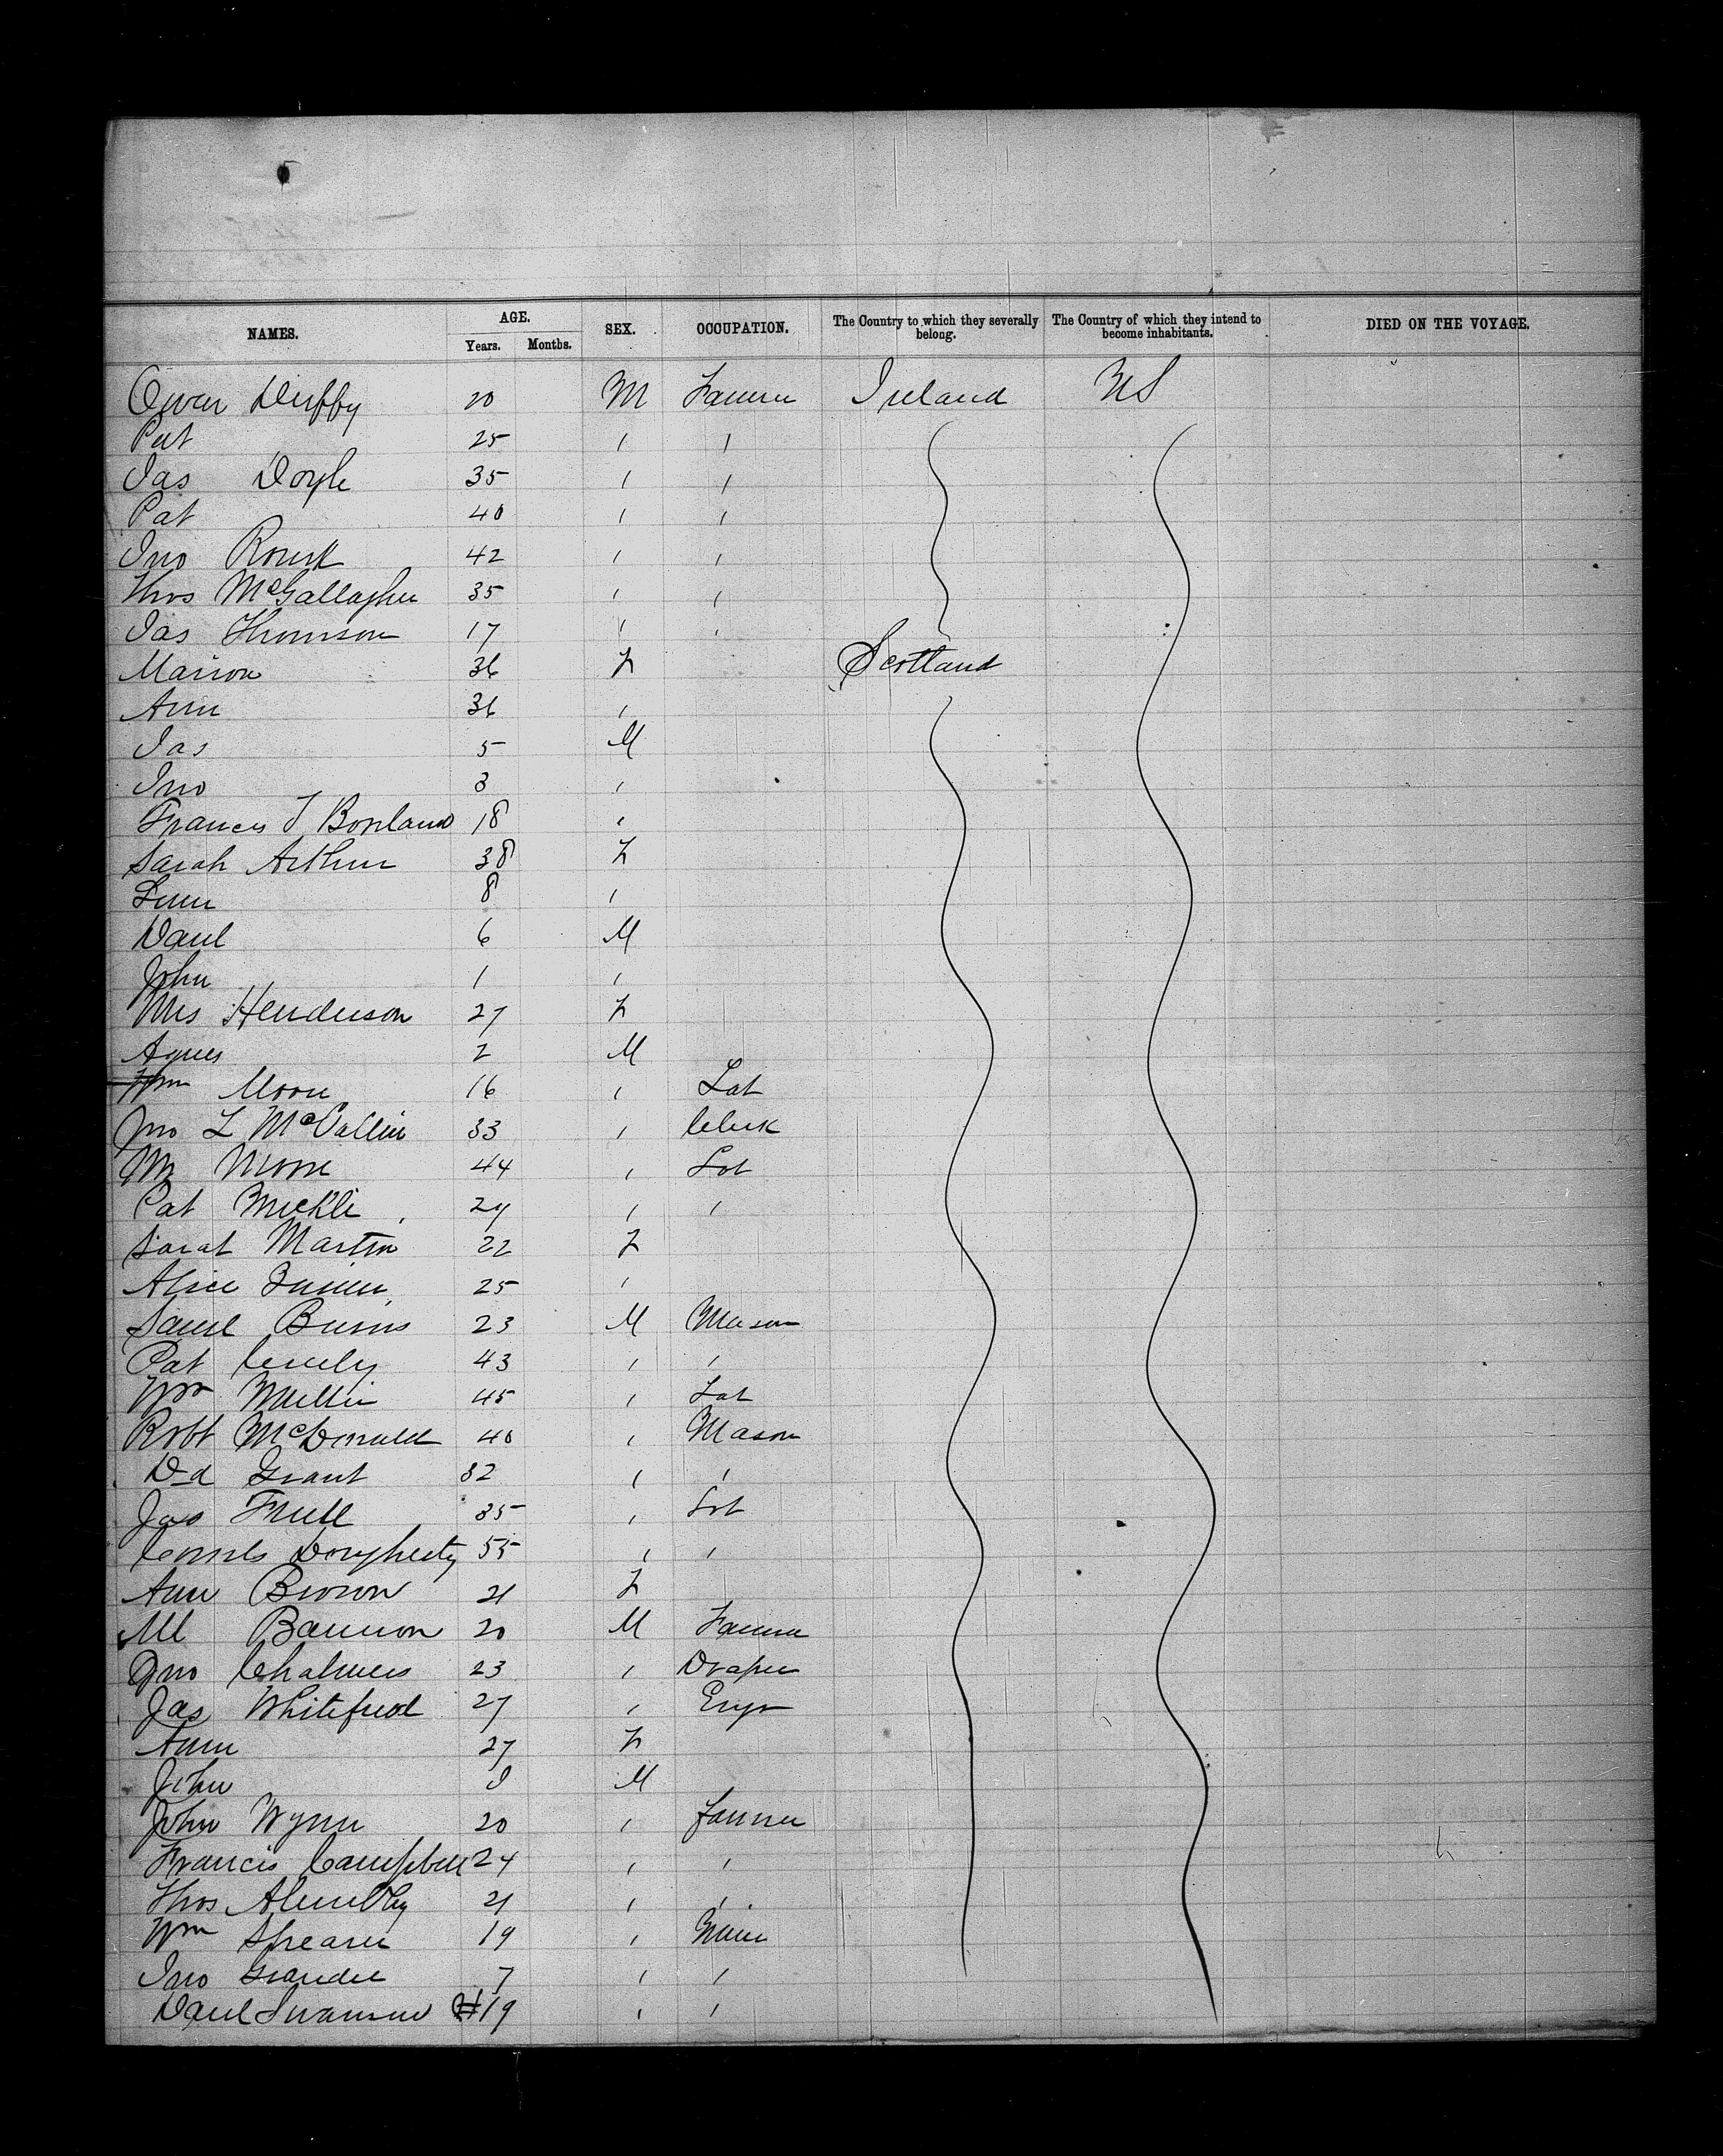 NAMES. AGE. Years. Months. SEX. OCCUPATION. The Country to which they severally belong. The Country of which they intend to become inhabitants. DIED ON THE VOYAGE.
Owen Duffy 20 M Farmer Ireland US
Pat 25 " "
Jas Doyle 35 " "
Pat 40 " "
Jno Rourk 42 " "
Thos McGallagher 35 " "
Jas Thomson 17 " "
Marion 36 F Scotland
Ann 36 "
Jas 5 M
Jno 3 "
Francis J Borland 18 "
Sarah Arthur 38 F
8 "
Danl 6 M
John 1 "
Mrs Henderson 27 F
Agnes 2 M
Wm Moore 16 " Lab
Jno L McCallum 33 " Clerk
44 " Lab
Pat Meckle 24 " "
Sarah Martin 22 F
Alice 25 "
Saml Burns 23 M Mason
Pat 43 " "
Wm Mullin 45 " Lab
Robt McDonald 40 " Mason
Dd Grant 32 " "
Jas 35 " Lab
Dougherty 55 " "
Ann Brown 21 F
Ml Bannon 20 M Farmer
Jno Chalmers 23 " Draper
Jas Whitefield 27 " Engr
Ann 27 F
John M
John Wynn 20 " Farmer
Francis Campbell 24 " "
Thos 21 " "
Wm Shearer 19 " Miner
Jno 7 " "
Danl 19 " "